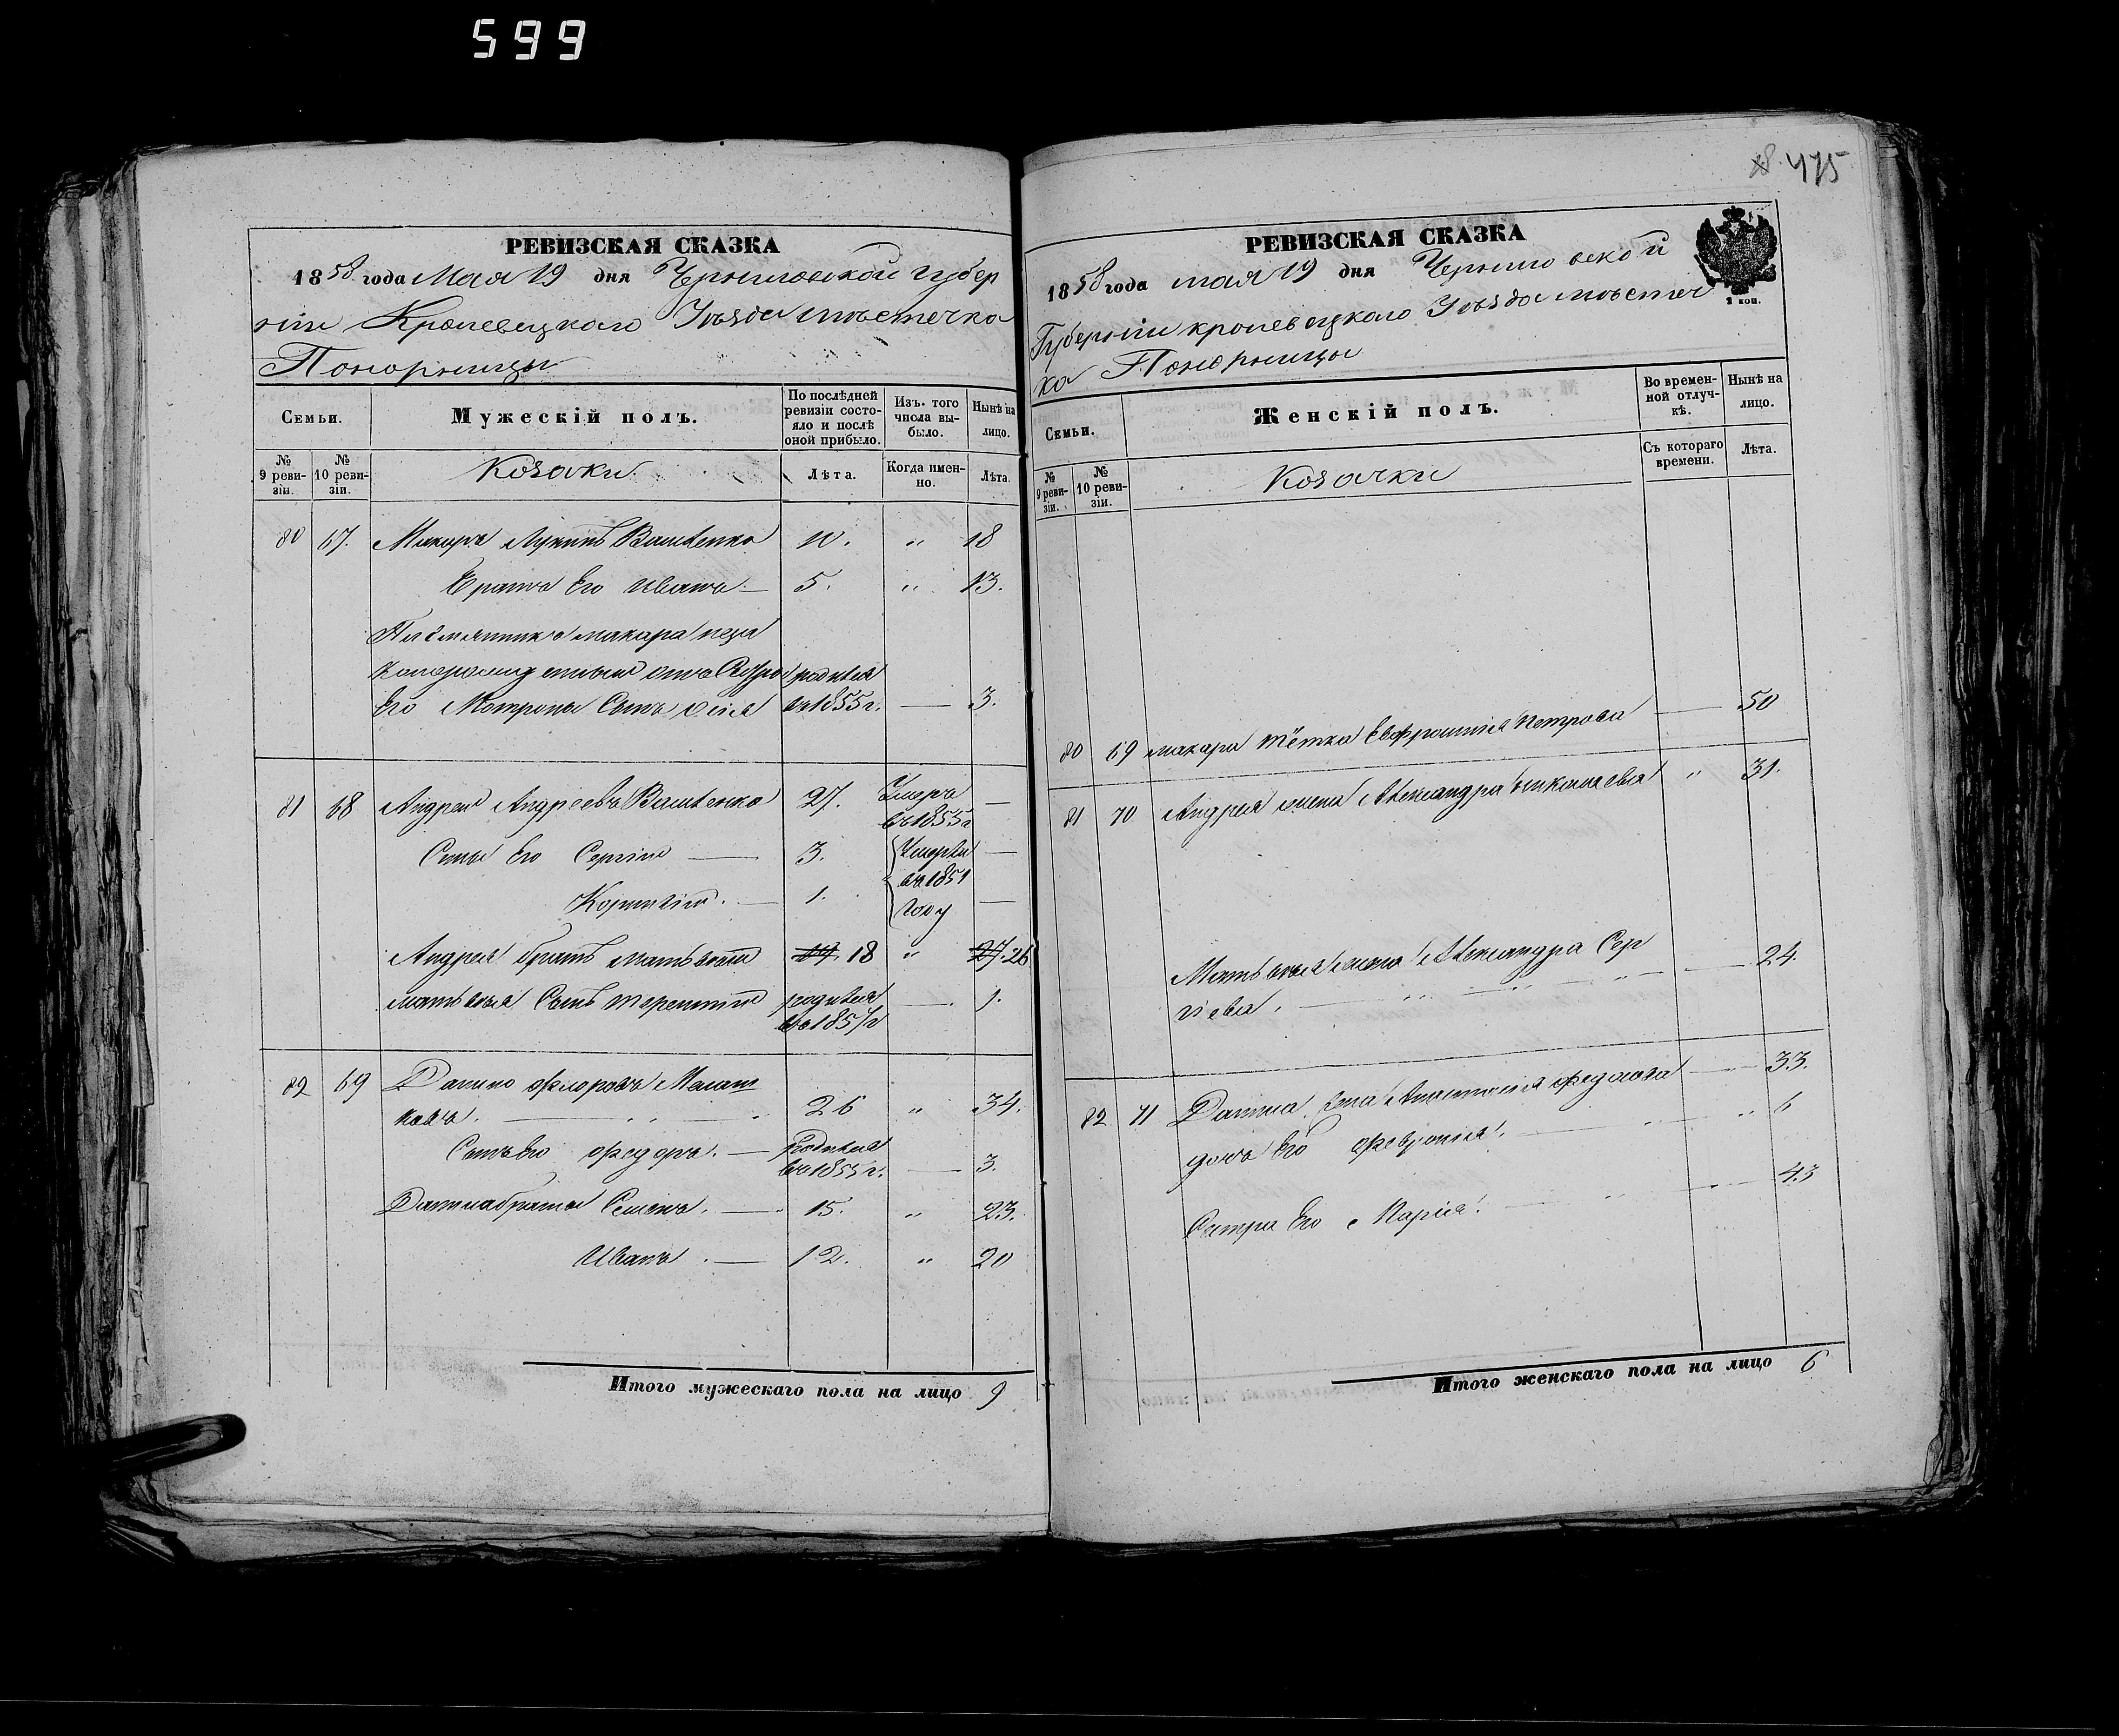 599
РЕВИЗСКАЯ СКАЗКА
1858 года Мая 19 дня Черниговской губер
ніи Кролевецкаго Уѣзда мѣстечка
Понорницы
Семьи.
Мужескій полъ.
По послѣдней ревизіи состояло и послѣ оной прибыло.
Изъ. того числа выбыло.
Нынѣ на лицо.
№ 9 ревизіи.
№ 10 ревизіи.
Козаки
Лѣта.
Когда именно.
Лѣта.
80 67. Макаръ Лукинъ 10. „ 18
Братъ Его Иванъ — 5. „ 13.
Племянникъ макара
родился
Его Мотроны Сынъ въ 1855 г. — 3.
81 68 Андрей Андреевъ 27. Умеръ въ 1855 г —
Сыны Его Сергій — 3. Умерли —
въ 1851
Корнилій. — 1. году —
Андрея братъ матвѣй 19. 18 „ 27. 26
матвѣя Сынъ терентій родился въ 1857 г — 1.
82 69 Данило Флоровъ
26 „ 34.
Сынъ Его Федоръ. — Родился въ 1855 г. — 3.
Данила братья Семенъ. — 15. „ 23.
Иванъ. — 12. „ 20
Итого мужескаго пола на лицо 9
475
РЕВИЗСКАЯ СКАЗКА
1858 года мая 19 дня Черниговской
2 коп.
Губерніи кролевецкаго Уѣзда мѣстеч
ка Понорницы
Семьи.
Женскій полъ.
Во временной отлучкѣ.
Нынѣ на лицо.
№ 9 ревизіи.
№ 10 ревизіи.
Козачки
Съ котораго времени.
Лѣта.
80 69 макара тётка Евфросинія Петрова — 50
81 70 Андрея жена Александра николаева „ 31.
Матвѣя жена Александра Сер
гіева. — 24.
82 71 Данила жена Анастасія федорова — 33.
дочь Его Февронія. — „ 6
Сестра Его Марія. — 43
Итого женскаго пола на лицо 6